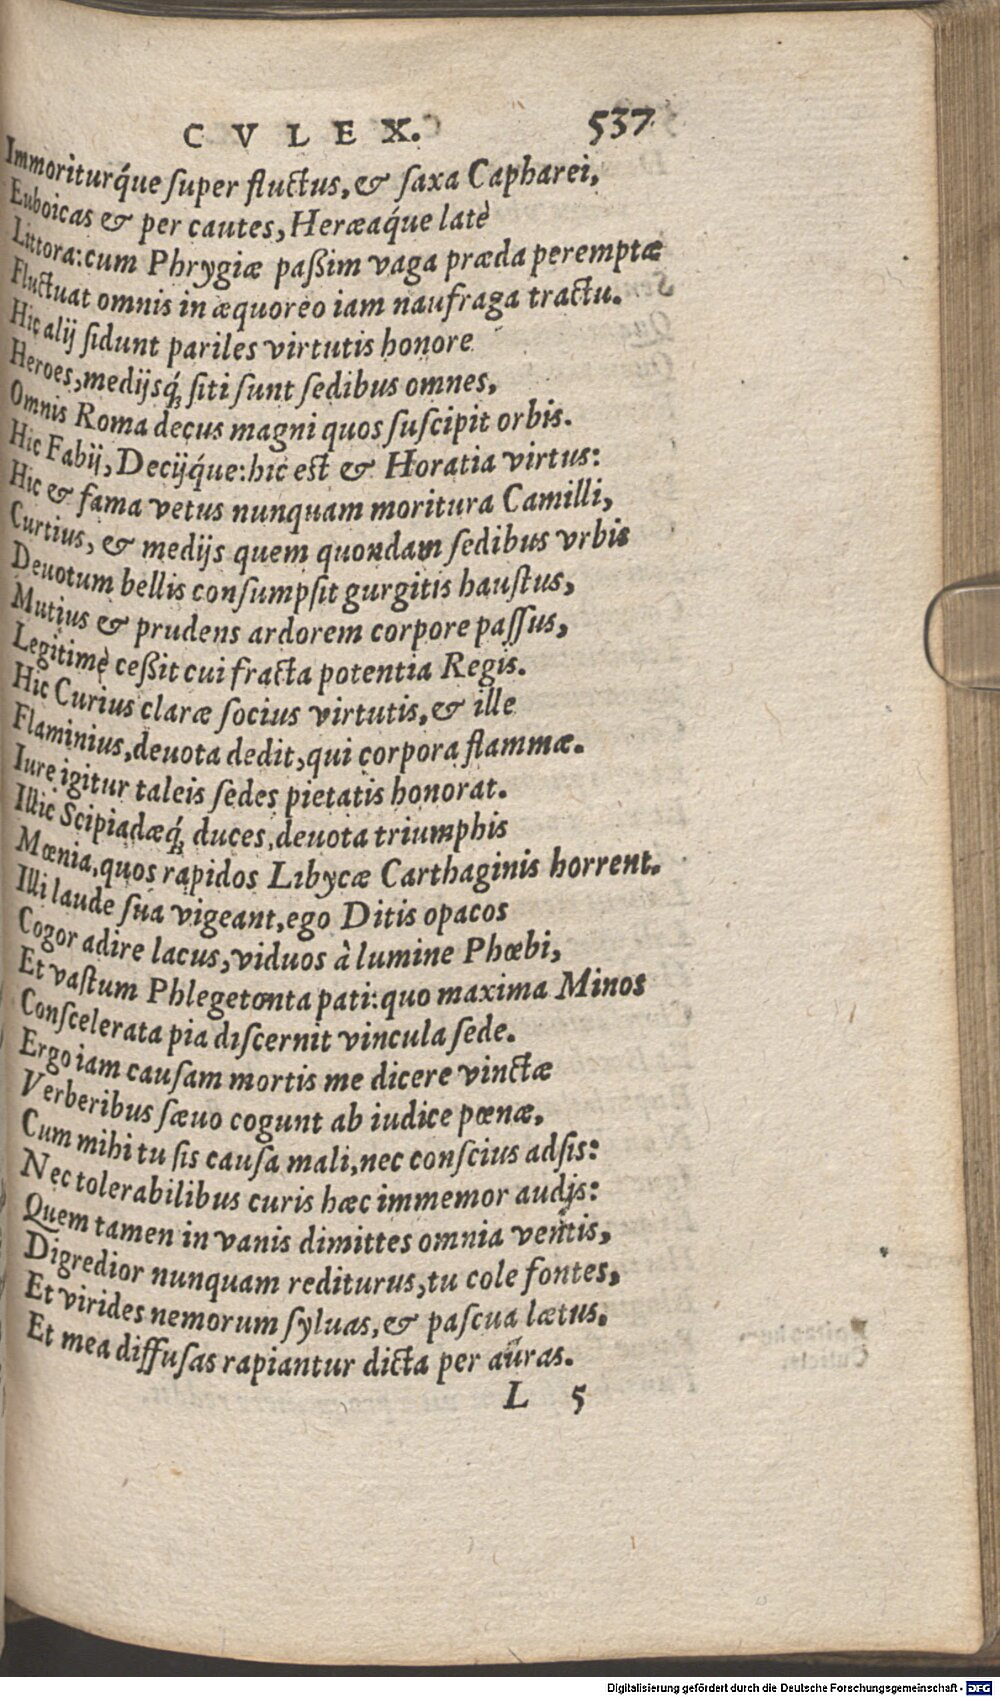 CVLEX. 537
Immoriturq́ue ſuper fluctus, & ſaxa Capharei,
Euboicas & per cautes, Heræaq́ue latè
Littora: cum Phrygiæ paßim vaga præda peremptæ
Fluctuat omnis in æquoreo iam naufraga tractu.
Hic alij ſidunt pariles virtutis honore
Heroes, medijsq́; ſiti ſunt ſedibus omnes,
Omnis Roma decus magni quos ſuſcipit orbis.
Hic Fabij, Decijq́ue: hic est & Horatia virtus:
Hic & fama vetus nunquam moritura Camilli,
Curtius, & medijs quem quondam ſedibus vrbis
Deuotum bellis conſumpſit gurgitis hauſtus,
Mutius & prudens ardorem corpore paſſus,
Legitimè ceßit cui fracta potentia Regis.
Hic Curius claræ ſocius virtutis, & ille
Flaminius, deuota dedit, qui corpora flammæ.
Iure igitur taleis ſedes pietatis honorat.
Illic Scipiadæq́; duces, deuota triumphis
Mœnia, quos rapidos Libycæ Carthaginis horrent.
Illi laude ſua vigeant, ego Ditis opacos
Cogor adire lacus, viduos à lumine Phœbi,
Et vaſtum Phlegetonta pati: quo maxima Minos
Conſcelerata pia diſcernit vincula ſede.
Ergo iam cauſam mortis me dicere vinctæ
Verberibus ſæuo cogunt ab iudice pœnæ,
Cum mihi tu ſis cauſa mali, nec conſcius adſis:
Nec tolerabilibus curis hæc immemor audis:
Quem tamen in vanis dimittes omnia ventis,
Digredior nunquam rediturus, tu cole fontes,
Et virides nemorum ſyluas, & paſcua lætus.
Et mea diffuſas rapiantur dicta per auras.
L 5
Digitalisierung gefördert durch die Deutsche Forschungsgemeinschaft - DFG